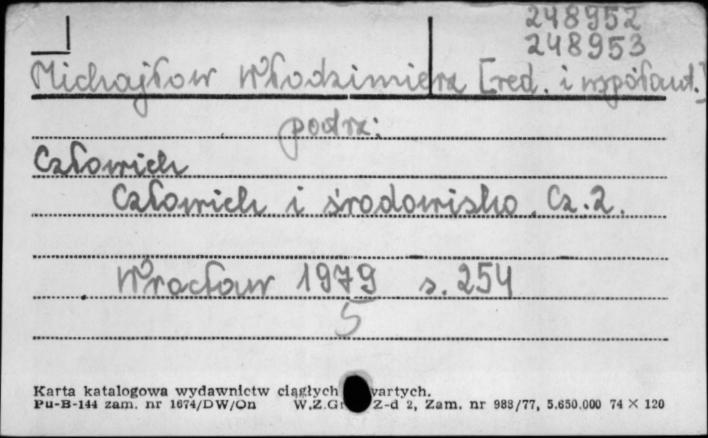 248952
248953
Michajłow Włodzimierz [red. i współaut.]
podrz:
Człowiek
Człowiek i środowisko. Cz. 2.
Wrocław 1979 s. 254
5
Karta katalogowa wydawnictw ciągłych
Pu-B-144 zam. nr 1674/DW/On W.Z.Gr Z-d 2, Zam. nr 983/77, 5.650.000 74 X 120